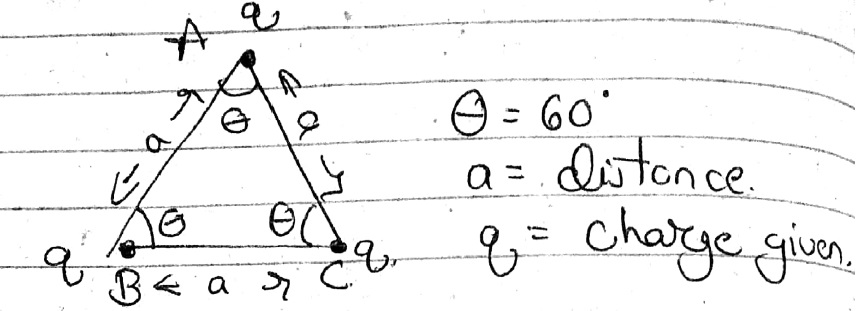 q
A
θ
a
a
θ = 60°
a = distance.
θ
θ
q = charge given.
q
B
a
C
q.